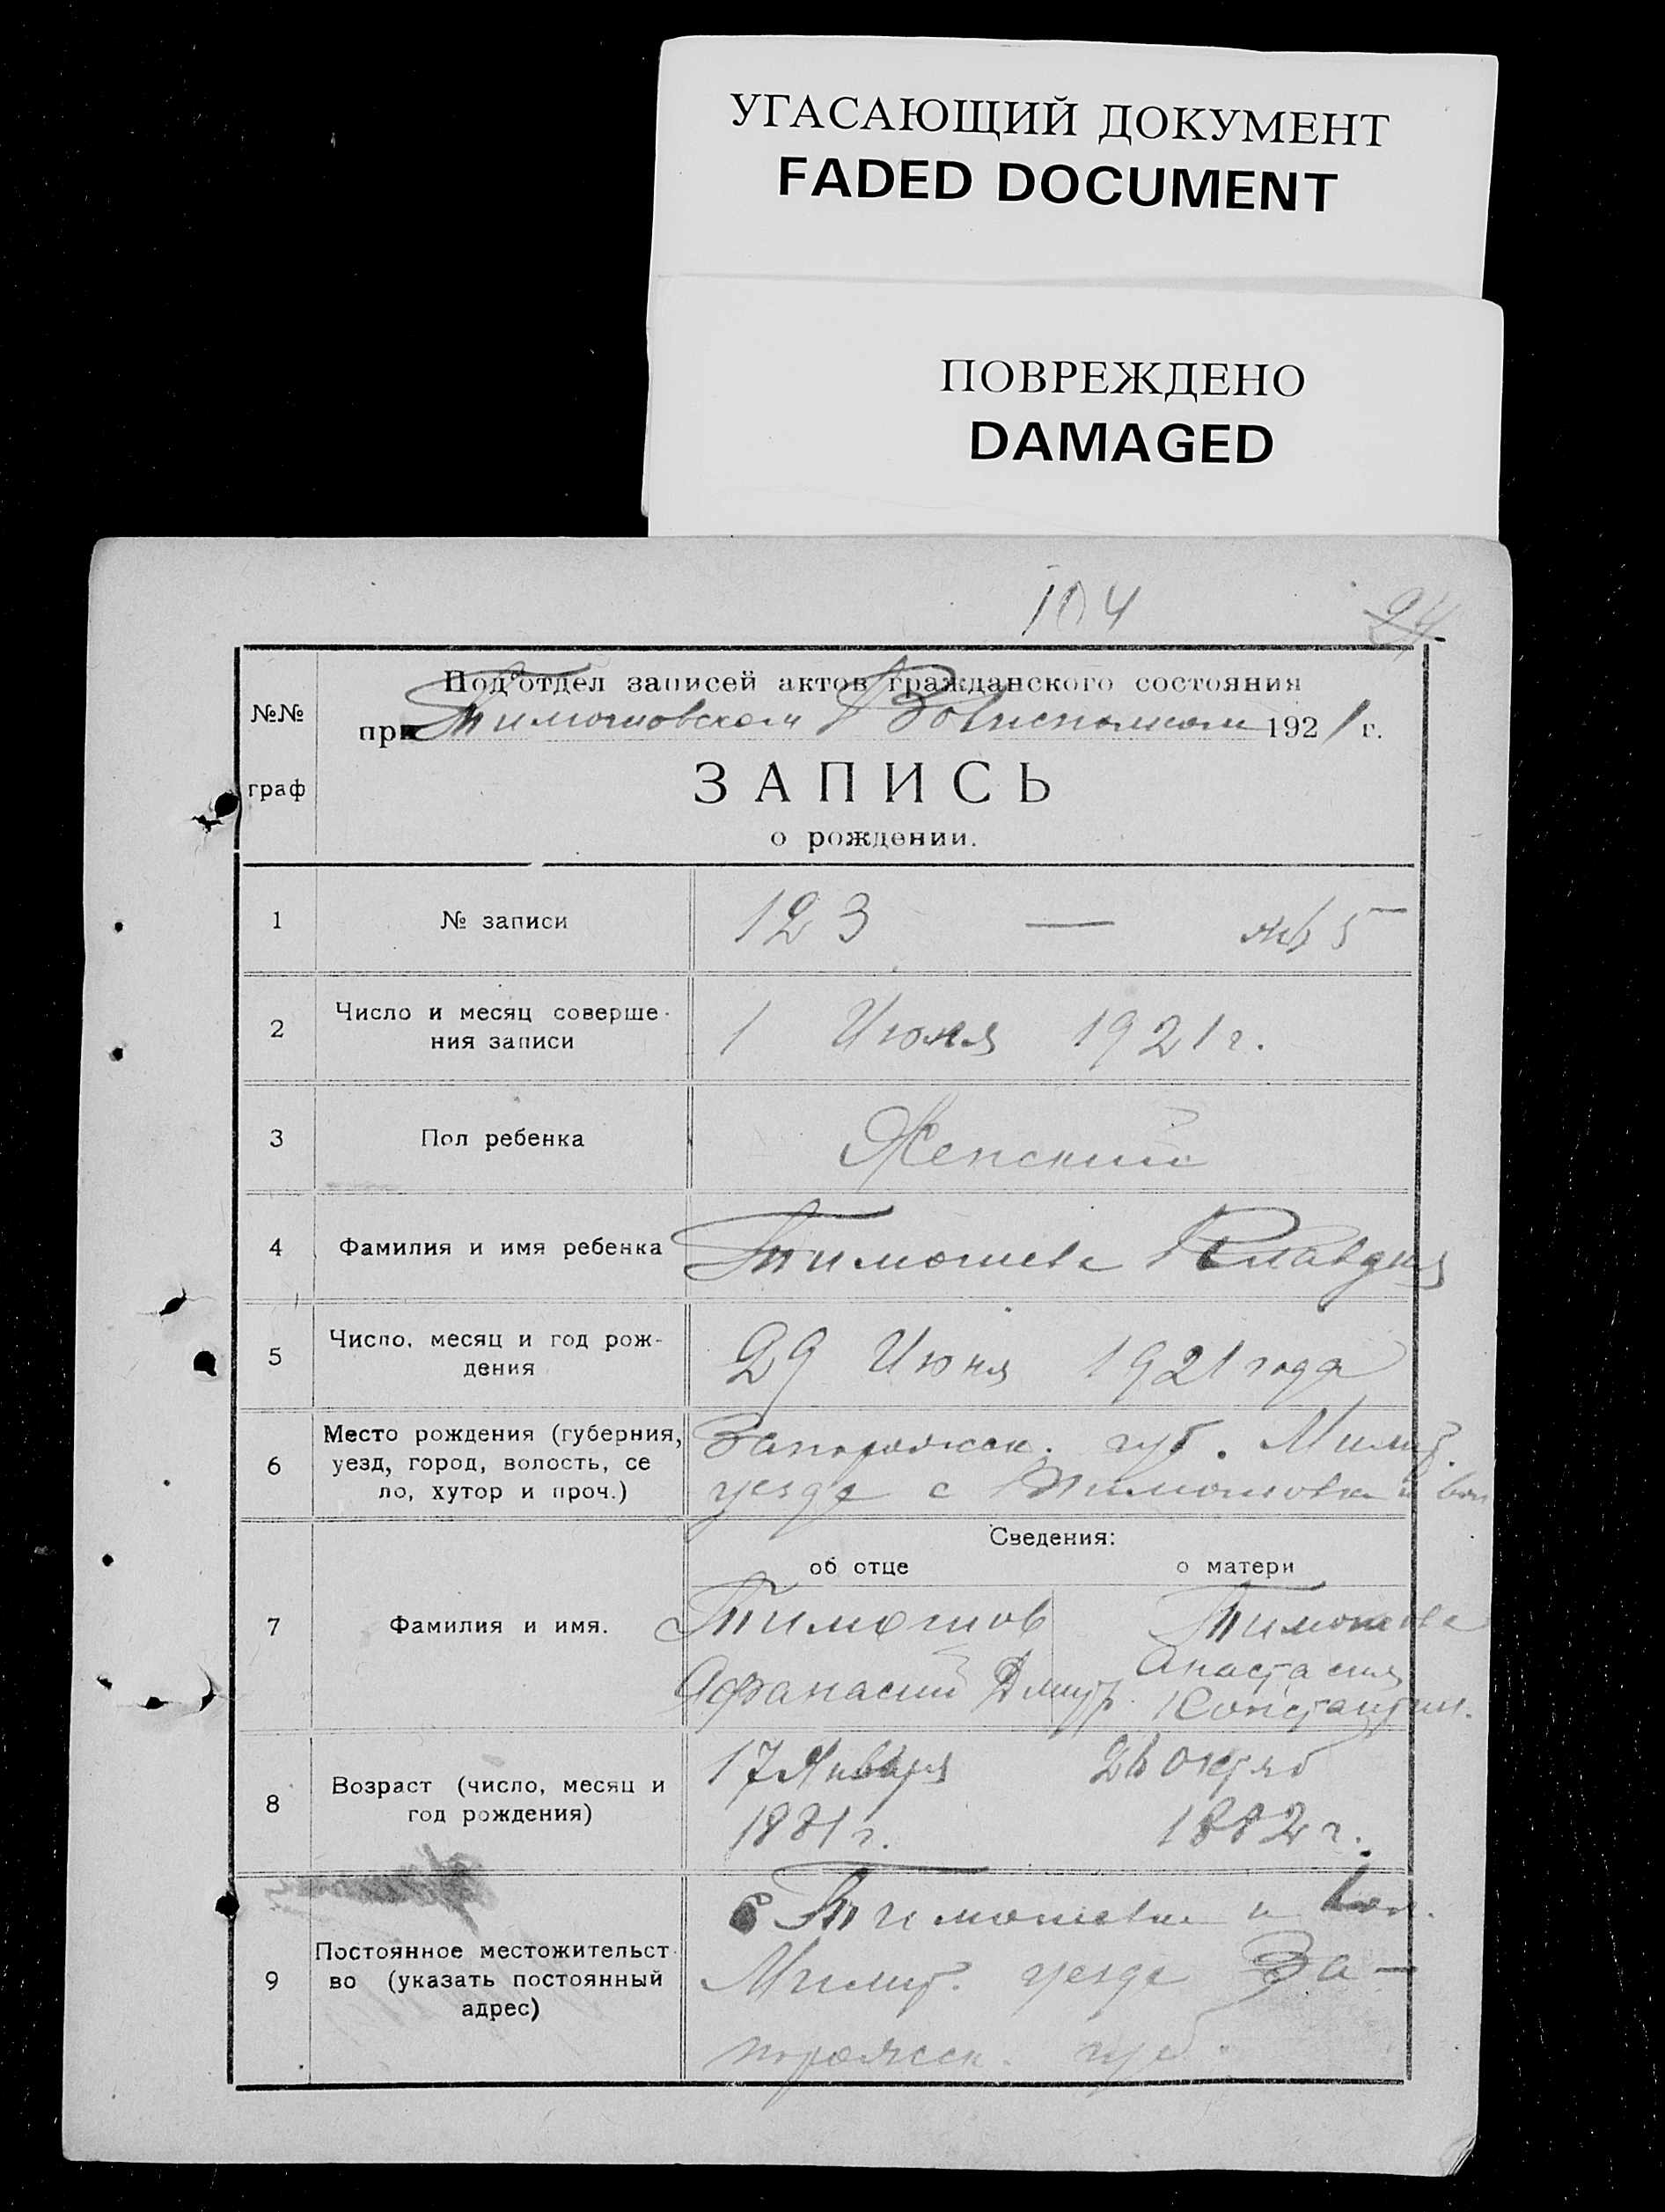 УГАСАЮЩИЙ ДОКУМЕНТ
FADED DOCUMENT
ПОВРЕЖДЕНО
DAMAGED
104
24
№№
граф
Подотдел записей актов гражданского состояния
при Тимошовском 1921 г.
ЗАПИСЬ
о рождении.
1
№ записи
123 — 5
2
Число и месяц соверше-
ния записи
1 Июля 1921 г.
3
Пол ребенка
Женский
4
Фамилия и имя ребенка
Тимошева Клавдия
5
Число, месяц и год рож-
дения
29 Июня 1921 года
6
Место рождения (губерния,
уезд, город, волость, се
ло, хутор и проч.)
Запорожск. губ. Мелит.
уезда с Тимошовка и вол
Сведения:
об отце
о матери
7
Фамилия и имя.
Тимошов
Афанасий Дмитр.
Тимошова
Анастасия
Константин.
8
Возраст (число, месяц и
год рождения)
17 Января
1881 г.
26 октяб
1882 г.
9
Постоянное местожительст-
во (указать постоянный
адрес)
с Тимошевка и вол.
Мелит. уезда За-
порожск. губ.